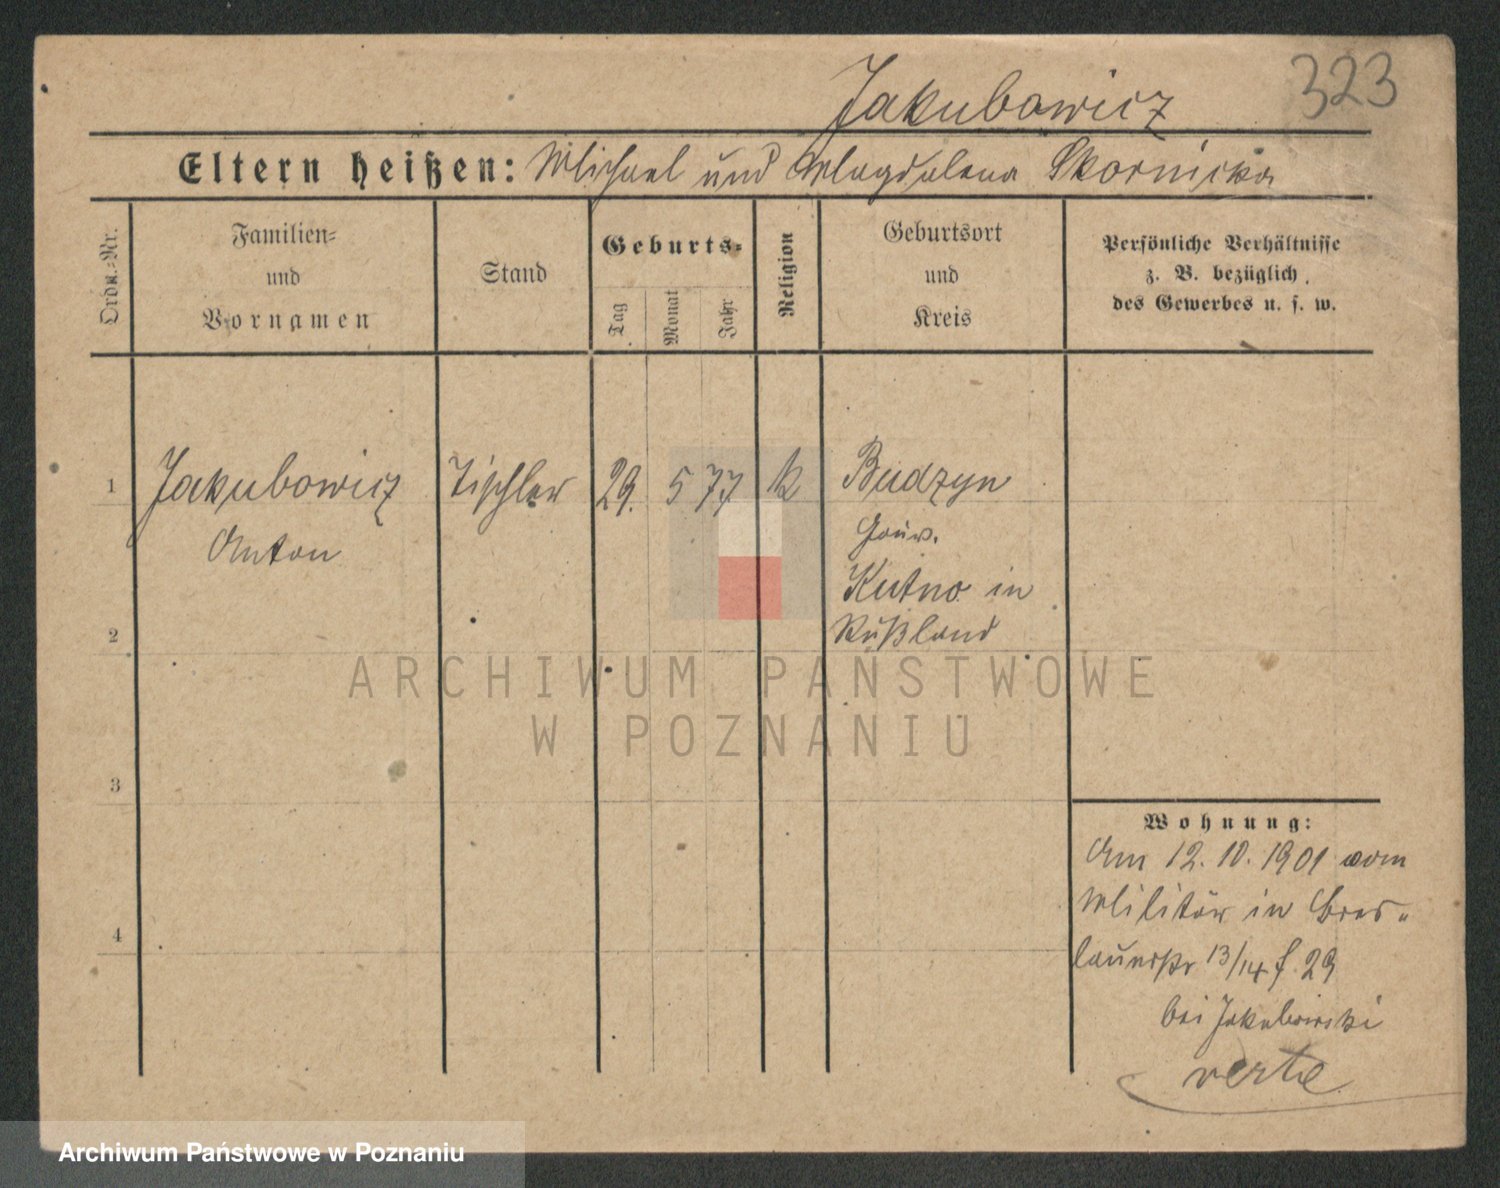 323
Jakubowicz
Eltern heißen: Michael und Magdalena Skornicka
Ordn.-Nr.
Familien-
und
Vornamen
Stand
Geburts-
Tag
Monat
Jahr
Religion
Geburtsort
und
Kreis
Persönliche Verhältnisse
z. B. bezüglich
des Gewerbes u. s. w.
1
Jakubowicz
Anton
Tischler
29.
5
77
k
Budzyn
Gouv.
Kutno in
Rußland
2
3
4
Wohnung:
Am 12.10.1901 vom
Militär in Bres-
lauerstr 13/14 f. 29
bei Jakubowski
verte
ARCHIWUM PAŃSTWOWE
W POZNANIU
Archiwum Państwowe w Poznaniu